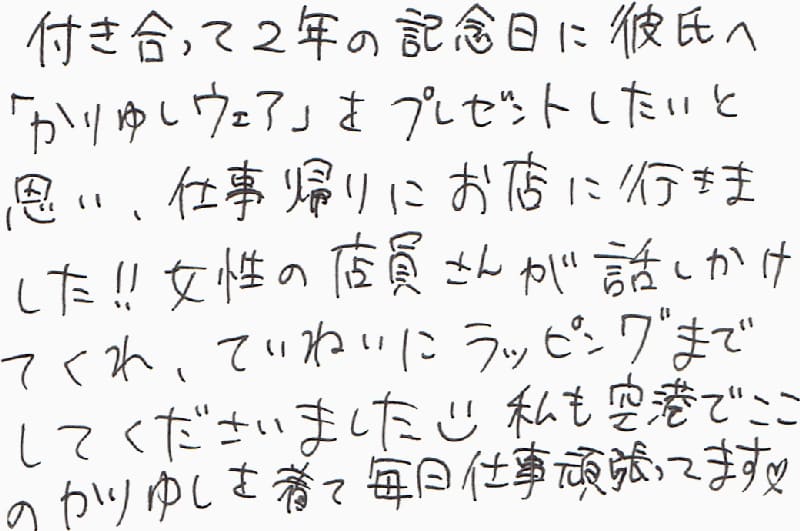 付き合って2年の記念日に彼氏へ
「かりゆしウェア」をプレゼントしたいと
思い、仕事帰りにお店に行きま
した!!女性の店員さんが話しかけ
てくれ、ていねいにラッピングまで
してくださいました☺私も空港でここ
のかりゆしを着て毎日仕事頑張ってます♡